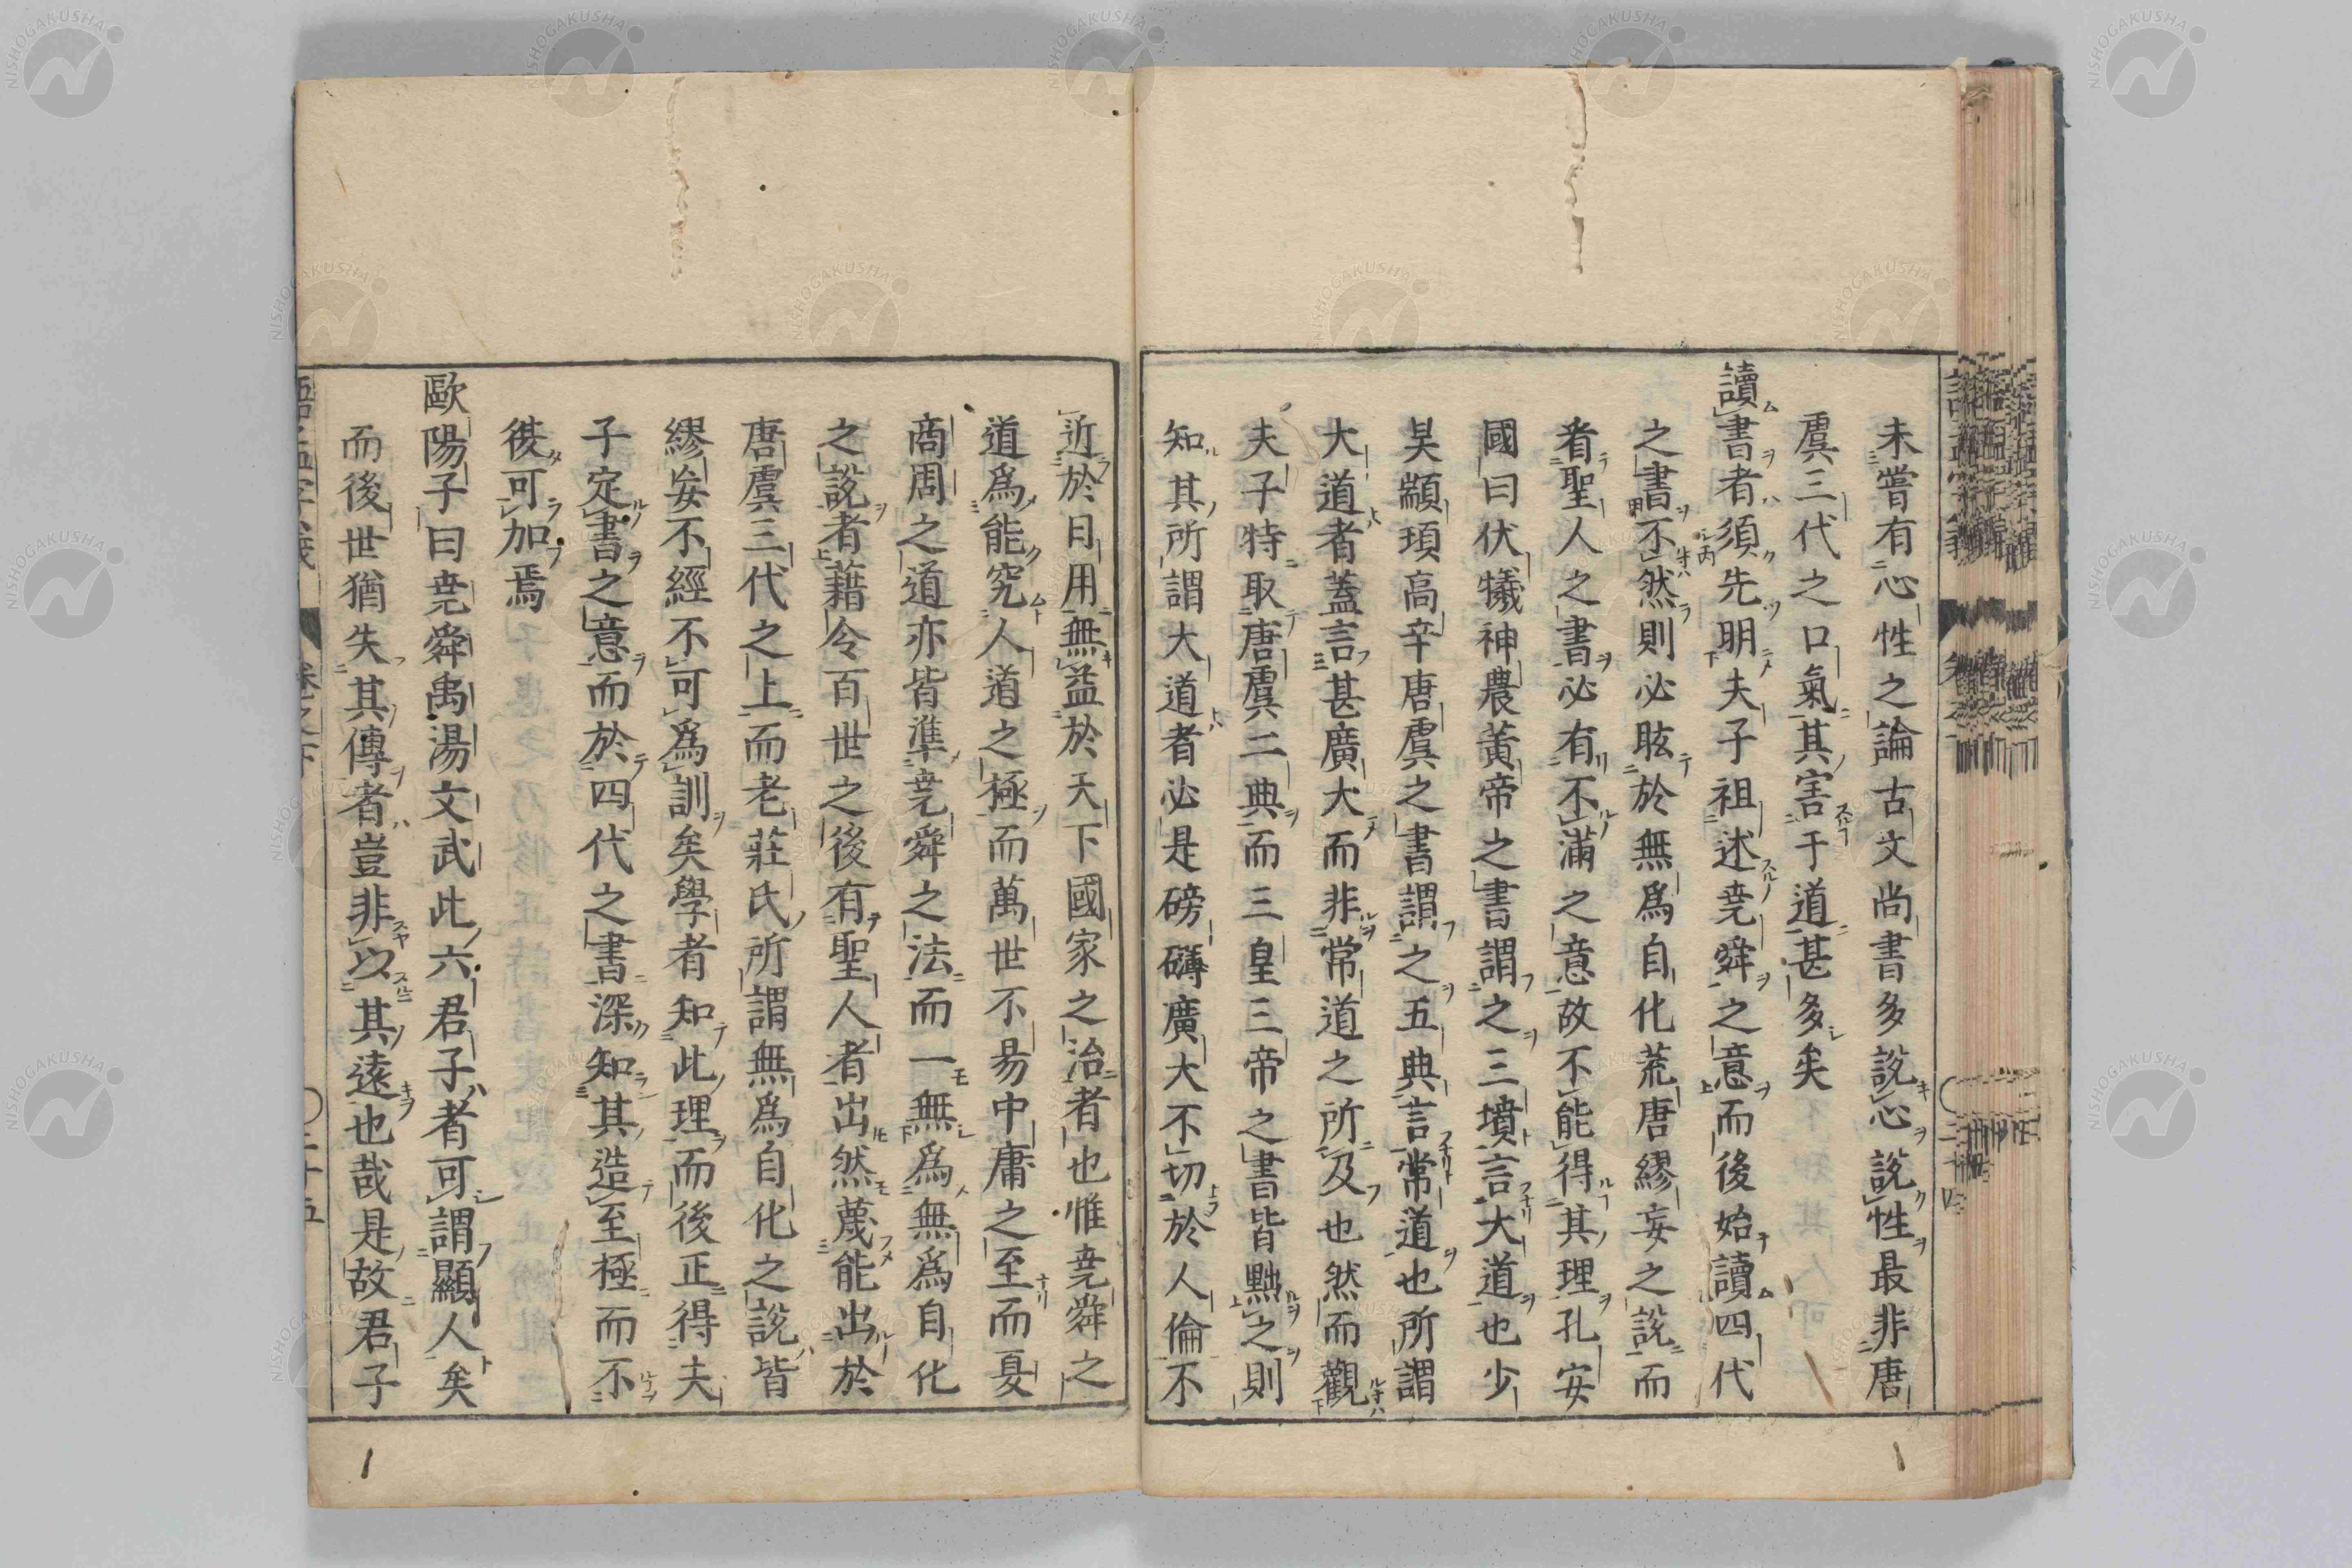 未嘗有心性之論古文尚書多説心説性最非唐
虞三代之口氣其害于道甚多矣
讀書者須先明夫子祖述堯舜之意而後始讀四代
之書不然則必眩於無爲自化荒唐繆妄之説而
者聖人之書必有不滿之意故不能得其理孔安
國曰伏犧神農黃帝之書謂之三墳言大道也少
昊顓頊高辛唐虞之書謂之五典言常道也所謂
大道者蓋言甚廣大而非常道之所及也然而觀
夫子特取唐虞二典而三皇三帝之書皆黜之則
知其所謂大道者必是磅礴廣大不切於人倫不
近於日用無益於天下國家之治者也惟堯舜之
道爲能究人道之極而萬世不易中庸之至而夏
商周之道亦皆準堯舜之法而一無爲無爲自化
之説者藉令百世之後有聖人者出然蔑能出於
唐虞三代之上而老莊氏所謂無爲自化之説皆
繆妄不經不可爲訓矣學者知此理而後正得夫
子定書之意而於四代之書深知其造至極而不
復可加焉
歐陽子曰堯舜禹湯文武此六君子者可謂顯人矣
而後世猶失其傳者豈非以其遠也哉是故君子
語孟字義
卷之下
〇二十五
NISHOGAKUSHA